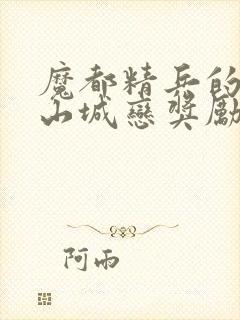 魔都精兵的
山城戀獎勵
阿雨